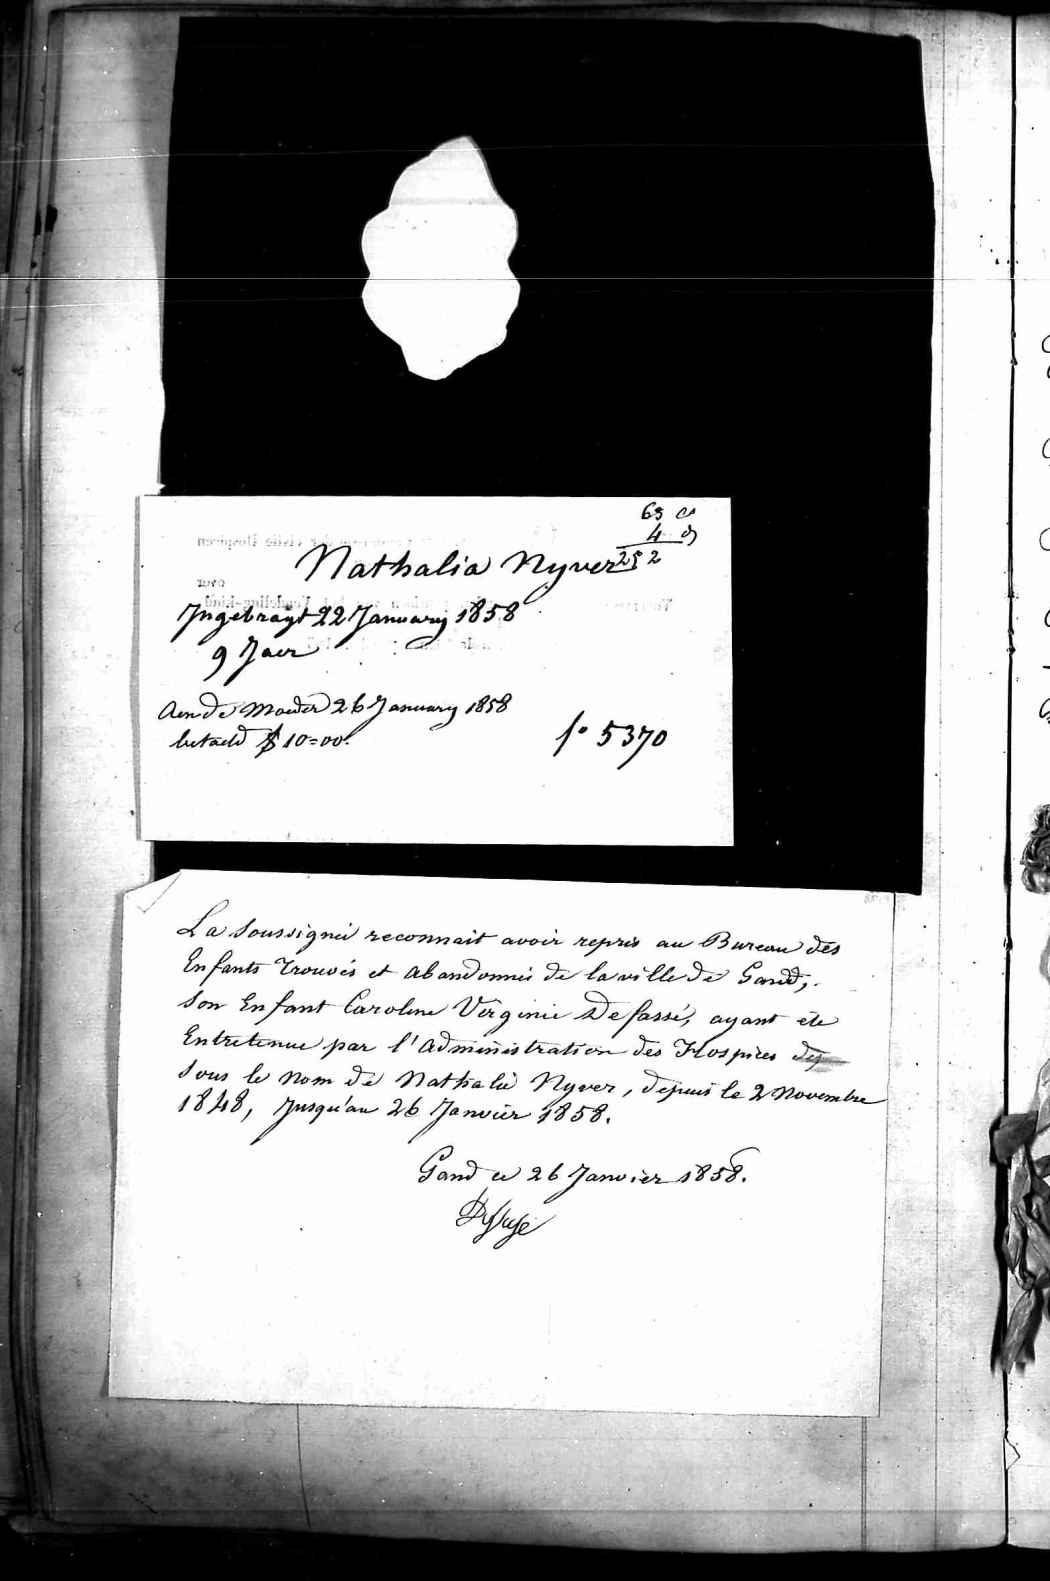 63 c
4 d
252
Nathalia Nyver
Ingebragt 22 January 1858
9 Jaer
Aen de Moeder 26 January 1858
betaeld 10=00.
f° 5370
La Soussignée reconnait avoir repris au Bureau des
Enfants Trouvés et abandonnés de la ville de Gand,
Son Enfant Caroline Virginie Defassé, ayant été
Entretenue par l'administration des Hospices
Sous le nom de Nathalie Nyver, depuis le 2 Novembre
1848, Jusqu'au 26 Janvier 1858.
Gand ce 26 Janvier 1858.